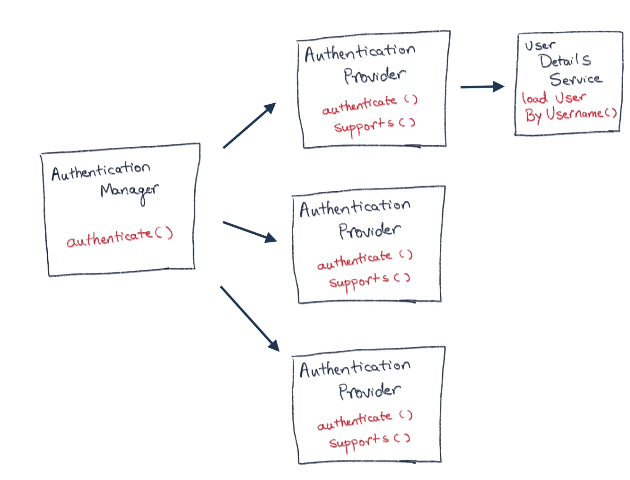 Authentication
Manager
authenticate()
Authentication
Provider
authenticate()
supports()
User
Details
Service
load User
By Username()
Authentication
Provider
authenticate()
supports()
Authentication
Provider
authenticate()
supports()